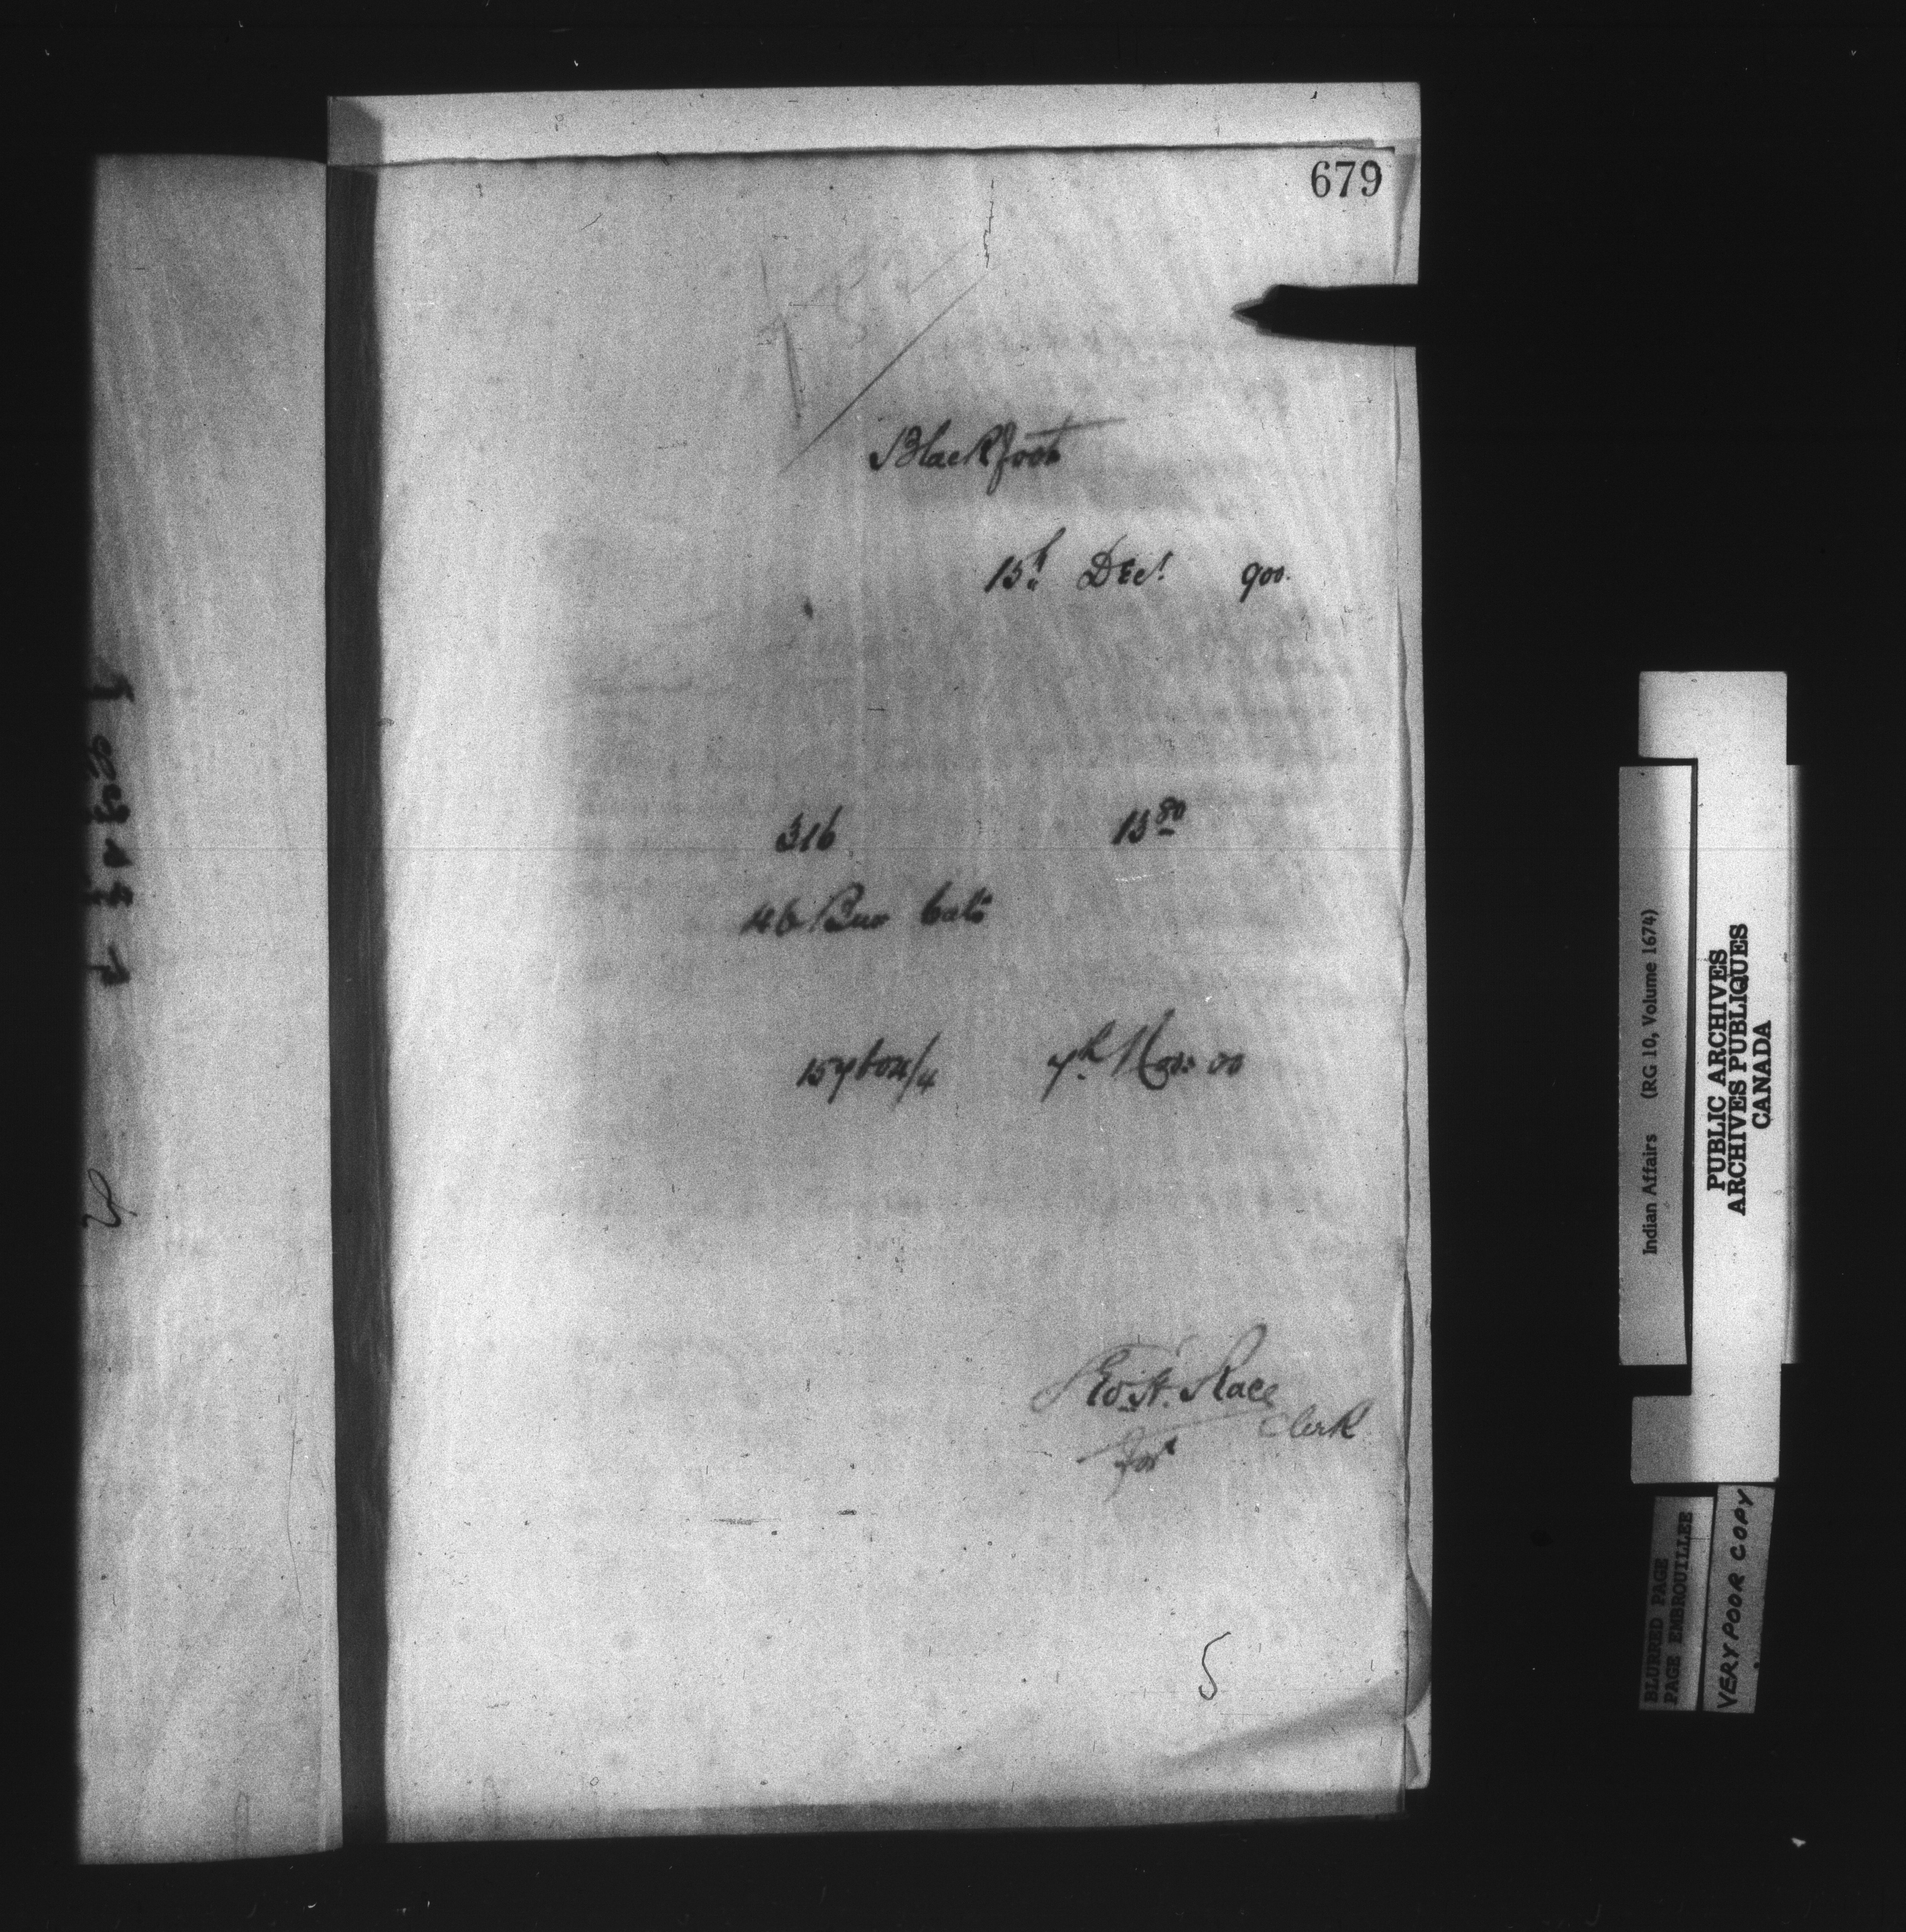 679
Blackfoot
15th Dec! 900.
316 13 80
46 Bus Oats
157604/4 7th Nov: 00
Geo. H. Race
Clerk
for
5
Indian Affairs (RG 10, Volume 1674)
PUBLIC ARCHIVES
ARCHIVES PUBLIQUES
CANADA
BLURRED PAGE
PAGE EMBROUILLEE
VERY POOR COPY